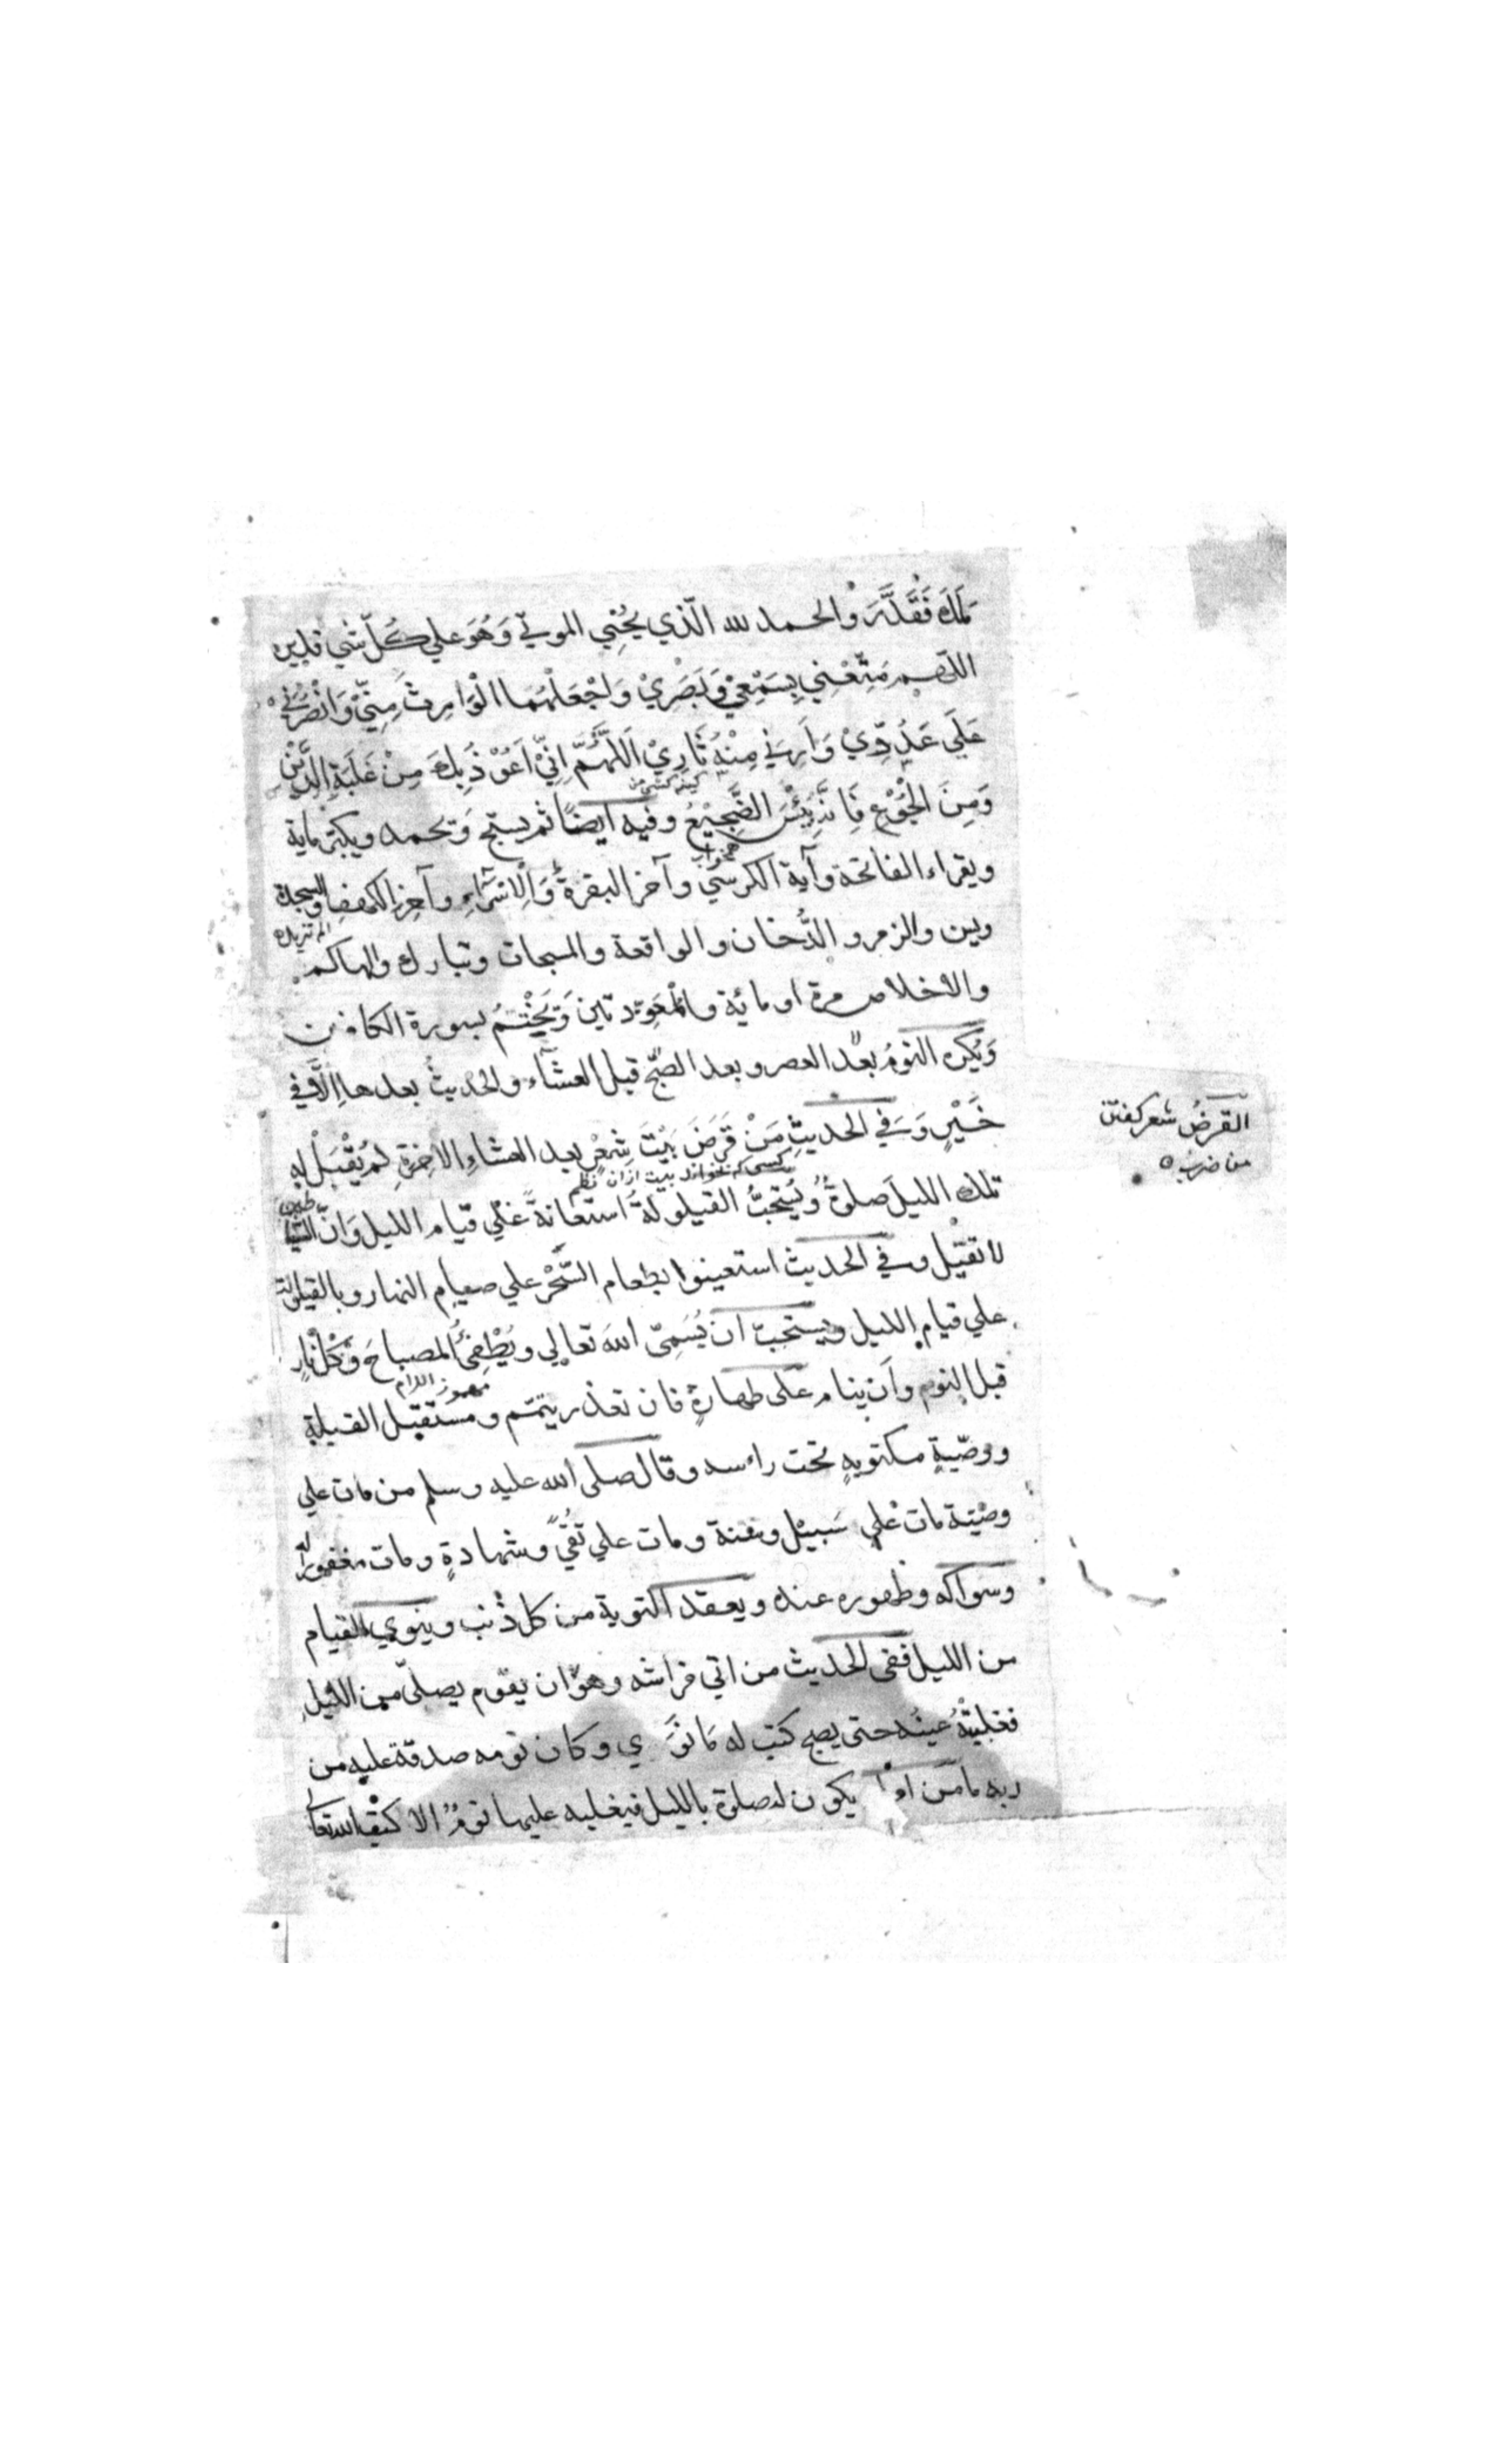 مَلَكَ فَقَدَرَ والحمد لله الّذي يُحْيِي الموتي وَهُوَ علي كُلّ شي قدير
اللّهم مَتِّعْنِي بِسَمْعِيْ وَبَصَرِيْ وَاجْعَلْهُمَا الْوَارِثَ مِنِّيْ وَانْصُرْنِيْ
عَلَي عَدُوِّيْ وَاَرِنِي مِنْهُ ثَارِيْ اَللّهُمَّ اِنِّيْ اَعُوْذُ بِكَ مِنْ غَلَبَةِ الدَّيْنِ
وَمِنَ الْجُوْعِ فَاِنَّهُ بِئْسَ الضَّجِيْعُ وفيه ايضًا ثم يسبّح وَيحمد ويكبّر ماية
هم خواب
ويقراء الفاتحة وآية الكرسي وآخر البقرة وَالْاِسْرَاءِ وآخِرِ الكهف والسجدة
الم تنزيل
ويس والزمر والدُّخان والواقعة والمسبحات وتبارك والهاكم
والاخلاص مرة او مائة والْمُعَوّذتين وَيَخْتِمُ بسورة الكافرين
وَيُكره النومُ بعد العصر وبعد الصّبح قبل العشاء والحديثُ بعدها اِلَّا في
خَيْرٍ وَفي الحديثِ مَنْ قَرَضَ بَيْتَ شِعْرٍ بعد العشاءِ الاخرةِ لم يُقْبَلْ له
القرضُ شعر كفتن
من ضرب
كسي كه بخواند بيت از ان نظم
تلك الليلَ صلوةٌ ويُستحبُّ القيلولةُ استعانةً علي قيام الليل وَانّ الشياطين
لا تقيل وفي الحديث استعينوا بطعام السَّحْر علي صيام النهار وبالقيلولة
علي قيام الليل ويستحبّ ان يُسَمِّى اللهَ تعالي ويُطْفِئُ المصباحَ وَكُلّ نارٍ
مهموز اللام
قبل النوم وأن ينام على طهارةٍ فان تعذر يتمّم ومستقبل القبلةِ
ووصّيةٍ مكتوبةٍ تحت راسه وقال صلى الله عليه وسلم من مات علي
وصّيتة مات علي سَبيْل وسنة ومات علي تُقًي وشهادةٍ ومات مغفورا له
وسواكه وطهوره عنده ويعقد التوبة من كل ذنب وينوي القيام
من الليل ففي الحديث من اتي فراشه وهو ان يقوم يصلّي من الليلِ
فغلبتهُ عينُه حتى يصبح كتب له مَا نَوَي وكان نومه صدقة عليه من
ربه ما من يكون له صلوة بالليل فيغلبه عليها نومٌ الا كتب الله تعالي